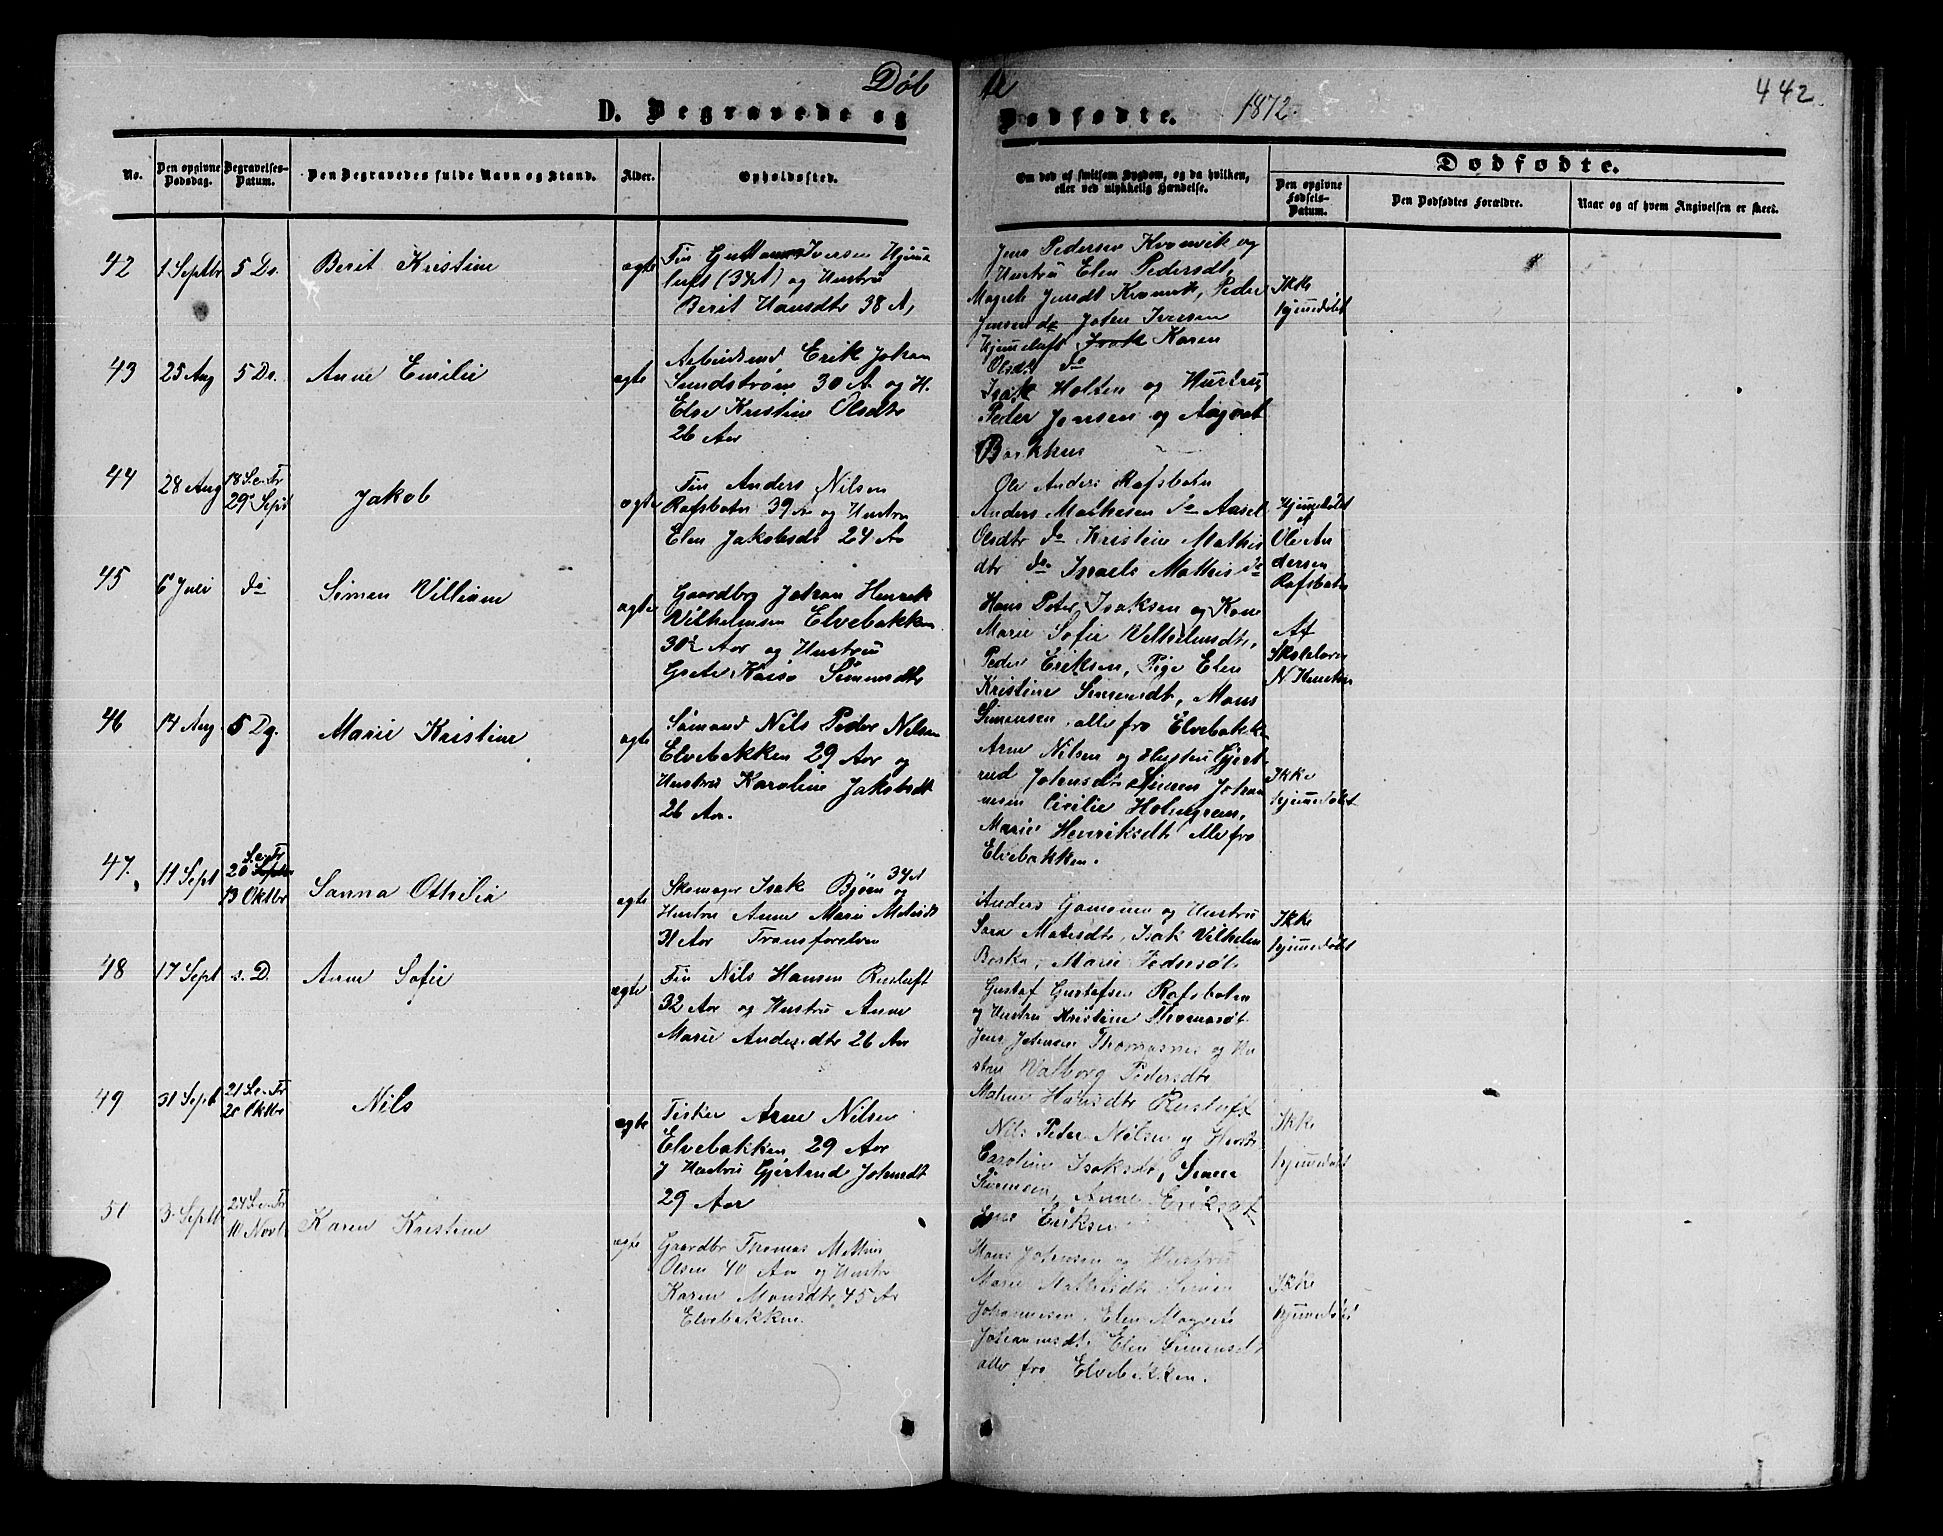 Døbte
442.
D. Begravede og Dødfødte. 1872.
No.
Den opgivne Dødsdag.
Begravelses-Datum.
Den Begravedes fulde Navn og Stand.
Alder.
Opholdssted.
Om død af smitsom Sygdom, og da hvilken, eller ved ulykkelig Hændelse.
Dødfødte.
Den opgivne Fødsels-Datum.
Den Dødfødtes Forældre.
Naar og af hvem Angivelsen er skeet.
42
1 Septbr
5 Do.
Berit Kristine
ægte
Fin Iversen
luft (34A) og Hustru
Berit Hansdtr 38 A,
Jens Pedersen Kvænvik og
Hustru Elen Pedersdt,
Magrete Jensdt Kvænvik, Peder
Jensen do Joten Iversen
Karen
Olsdt do
Ikke
hjemedøbt
43
25 Aug
5 Do.
Anne Emilie
ægte
Arbeidsmd Erik Johan
Sundstrøm 30 A og H.
Else Kristine Olsdtr
26 Aar
Isak Holten og Hustru,
Peder Jensen og
Bakken
44
28 Aug
18 Se. Tr
29 Sept
Jakob
ægte
Fin Anders Nilsen
Rafsbotn 39 A og Hustru
Elen Jakobsdt 24 Aa
Ole Anders Rafsbotn
Anders Mathisen do
Olsdtr do Kristine Mathis
dtr do Israels Mathis do
Hjemedøbt
af
Ole An
dersen
Rafsbotn
45
6 Juli
do
Simon Villiam
ægte
Gaardbrg Johan Henrik
Vilhelmsen Elvebakken
30½ Aar og Hustru
Grete Kaisa Simonsdtr
Hans Peter Isaksen og Kone
Marie Sofie Vilhelmsdtr,
Peder Eriksen, Pige Elen
Kristine Simonsdt, Mons
Simonsen, alle fra Elvebakken
Af
Skolelærer
N
46
14 Aug
5 Dg.
Marie Kristine
ægte
Sømand Nils Peder Nilsen
Elvebakken 29 Aar og
Hustru Karoline Jakobsdt
26 Aar.
Arne Nilsen og Hustru Gjert
rud Johansdtr Simon Johan
nesen Cicilie Holmgren,
Marie Henriksdt Alle fra
Elvebakken.
Ikke
hjemedøbt
47.
11 Sept
Se. Tr
20 Septbr
13 Oktbr
Sanna Othelia
ægte
Skomager Isak Bjørn 34A og
Hustru Anne Marie
31 Aar Transfarelven
Anders og Hustru
Sara Matisdtr, Isak Vilhelm
Marie Pedersdt
Ikke
hjemedøbt
48
17 Sept
s. D.
Anne Sofie
ægte
Fin Nils Hansen Rusluft
32 Aar og Hustru Anne
Marie Andersdtr 26 Aar
Gustaf Gustafsen Rafsbotn
og Hustru Kristine Thomasdt
Jens Johnsen Thomasnes og Hu
stru Valborg Pedersdtr
Hansdtr Rusluft
49
31 Sept
21 Se. Tr
20 Oktbr
Nils
ægte
Fisker Arne Nilsen
Elvebakken 29 Aar
og Hustru Gjertrud Johansdt
29 Aar
Nils Peder Nilsen og Hustr
Caroline Isaksdtr,
Sørensen, Anne Eriksdt
Eriksen
Ikke
hjemedøbt
51
3 Septbr
24 Se. Tr
10 Novbr
Karen Kristine
ægte
Gaardbr Thomas
Olsen 40 Aar og Hustru
Karen Monsdtr 45 Ar
Elvebakken
Mons Johansen og Hustru
Marie Mathisdtr Simon
Johannesen, Elen Magrete
Johannesdt. Elen Simonsdt
alle fra Elvebakken.
Ikke
hjemedøbt